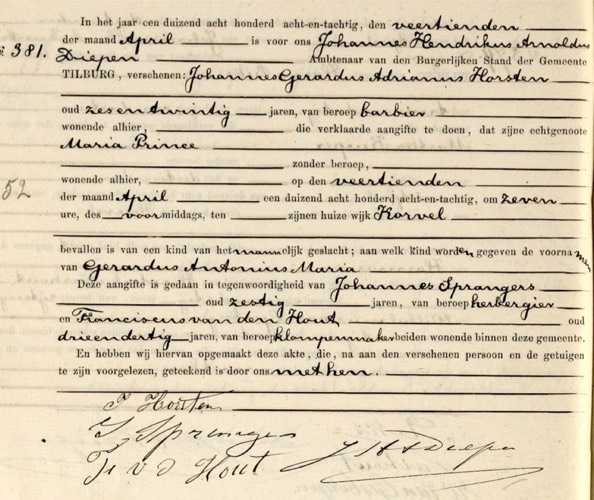 In het jaar een duizend acht honderd acht-en-tachtig, den veertienden
der maand April is voor ons Johannes Hendrikus Arnoldus
No 381. Diepen Ambtenaar van den Burgerlijken Stand der Gemeente
TILBURG, verschenen: Johannes Gerardus Adrianus Horsten
oud zes en twintig jaren, van beroep barbier
wonende alhier, die verklaarde aangifte te doen, dat zijne echtgenoote
Maria Prince
zonder beroep,
52 wonende alhier, op den veertienden
der maand April een duizend acht honderd acht-en-tachtig, om zeven
ure, des voormiddags, ten zijnen huize wijk Korvel
bevallen is van een kind van het mannelijk geslacht; aan welk kind worden gegeven de voornamen
van Gerardus Antonius Maria
Deze aangifte is gedaan in tegenwoordigheid van Johannes Sprangers
oud zestig jaren, van beroep herbergier
en Franciscus van den Hout oud
drieendertig jaren, van beroep klompenmaker beiden wonende binnen deze gemeente.
En hebben wij hiervan opgemaakt deze akte, die, na aan den versehenen persoon en de getuigen
te zijn voorgelezen, geteekend is door ons met hen.
Horsten
Sprangers
Fr v d Hout JHADiepen